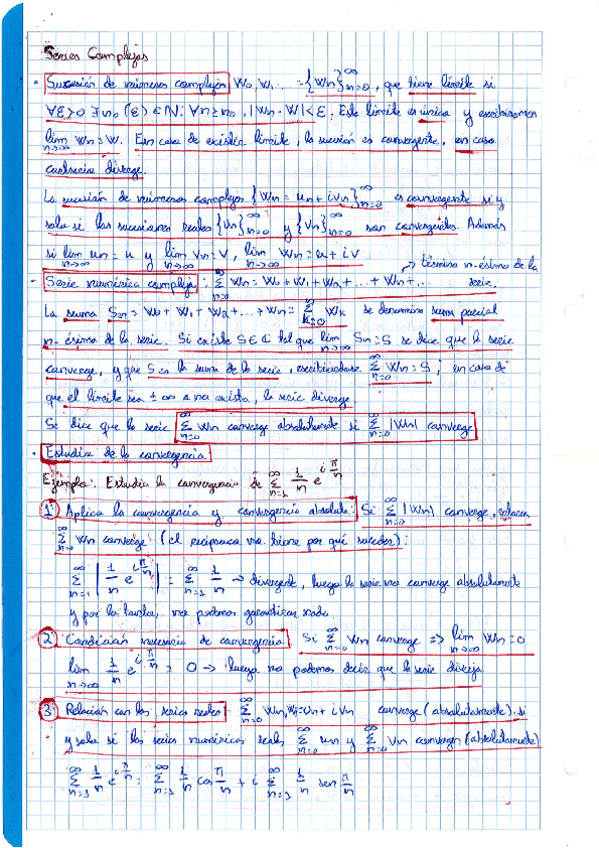 Series Complejas
· Sucesión de números complejos W₀, W₁ ... = {Wn}_{n=0}^∞, que tiene límite si
∀ε>0 ∃n₀(ε)∈ℕ: ∀n≥n₀, |Wn-W|<ε. Este límite es único y escribiremos
lim_{n→∞} Wn = W. En caso de existir límite, la sucesión es convergente, en caso
contrario diverge.
La sucesión de números complejos {Wn = un + iVn}_{n=0}^∞ es convergente si y
solo si las sucesiones reales {Un}_{n=0}^∞ y {Vn}_{n=0}^∞ son convergentes. Además
si lim_{n→∞} un = u y lim_{n→∞} Vn = V, lim_{n→∞} Wn = u + iv
→ término n-ésimo de la serie.
· Serie numérica compleja: Σ_{n=0}^∞ Wn = W₀ + W₁ + Wn + ... + Wn + ...
La suma Sn = W₀ + W₁ + W₂ + ... + Wn = Σ_{k=0}^n Wk se denomina suma parcial
n-ésima de la serie. Si existe S∈ℂ tal que lim_{n→∞} Sn = S se dice que la serie
converge, y que S es la suma de la serie, escribiéndose Σ_{n=0}^∞ Wn = S; en caso de
que el límite sea ±∞ o no exista, la serie diverge.
Se dice que la serie Σ_{n=0}^∞ Wn converge absolutamente si Σ_{n=0}^∞ |Wn| converge
· Estudio de la convergencia
Ejemplo: Estudia la convergencia de Σ_{n=1}^∞ 1/n e^{iπ/n}
1) Aplica la convergencia y convergencia absoluta: Si Σ_{n=0}^∞ |Wn| converge, entonces
Σ_{n=0}^∞ Wn converge (el recíproco no tiene por qué suceder):
Σ_{n=1}^∞ |1/n e^{iπ/n}| = Σ_{n=1}^∞ 1/n → divergente, luego la serie no converge absolutamente
y por lo tanto, no podemos garantizar nada.
2) Condición necesaria de convergencia: Si Σ_{n=0}^∞ Wn converge => lim_{n→∞} Wn = 0
lim_{n→∞} 1/n e^{iπ/n} = 0 → luego no podemos decir que la serie diverja
3) Relación con las series reales: Σ_{n=0}^∞ Wn, Wn = Un + iVn converge (absolutamente) si
y solo si las series numéricas reales Σ_{n=0}^∞ un y Σ_{n=0}^∞ Vn convergen (absolutamente)
Σ_{n=1}^∞ 1/n e^{iπ/n} = Σ_{n=1}^∞ 1/n cos π/n + i Σ_{n=1}^∞ 1/n sen π/n